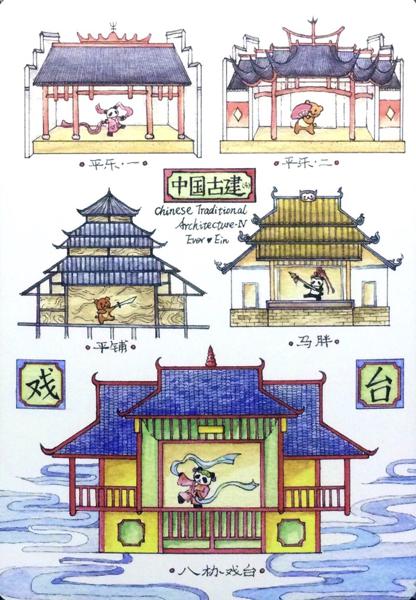 平乐·一
平乐·二
中国古建
Chinese Traditional
Architecture-IV
Ever ♥ Ein
平铺
马胖
戏
台
八协戏台